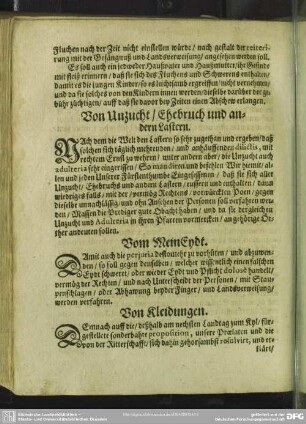 Fluchen nach der Zeit nicht einstellen würde/ nach gestalt der reiterirung mit der Gefängnuß und Landsverweisung/ angesehen werden soll.
Es soll auch ein jedweder Haußvater und Haußmutter/ ihr Gesinde
mit fleiß erinnern/ daß sie sich des Fluchens und Schwerens enthalten/
damit es die jungen Kinder/ so es leichtsamb ergreiffen/ nicht vernehmen/
und da sie solches von den Kindern innen werden/ dieselbe darüber der gebühr züchtigen/ auff daß sie davor bey Zeiten einen Abschew erlangen.
Von Unzucht/ Ehebruch und andern Lastern.
NAch dem die Welt den Lastern so sehr zugethan und ergeben/ daß
solchen sich täglich mehren
mit
rechtem Ernst zu wehren/ unter andern aber/ die Unzucht auch
adulteria sehr einreissen/ So
und befehlen Wir hiermit allen und jeden Unserer Fürstenthumbe Eingesessenen/ daß sie sich aller
Unzucht/ Ehebruchs und andern Lastern/ eussern und enthalten/ dann
wiedriges falls/ mit der
Poen/ gegen
dieselbe unnachlässig/ und ohn Ansehen der Personen soll verfahren werden/ Massen die Prediger gute Obacht haben/ und da sie dergleichen
Unzucht und Adulteria in ihren Pfarren vormercken/ an gehörige Örther andeuten sollen.
Vom MeinEydt.
DAmit auch die perjuria
zu verhüten/ und abzuwenden/ so soll gegen denselben/ welcher wissentlich einen falschen
Eydt schweret/ oder wieder Eydt und Pflicht dolosè handelt/
vermög der Rechten/ und nach Unterscheidt der Personen/ mit Staupenschlagen/ oder Abhawung beyder Finger/ und Landsverweisung/
werden verfahren.
Von Kleidungen.
DEmnach auff die/ deßhalb am nechsten Landtag zum Kyl/ fürgestellete sonderbahre proposition/ unsere Prælaten und die
von der Ritterschafft/ sich dahin gehorsambst resolvirt, und erkläret/